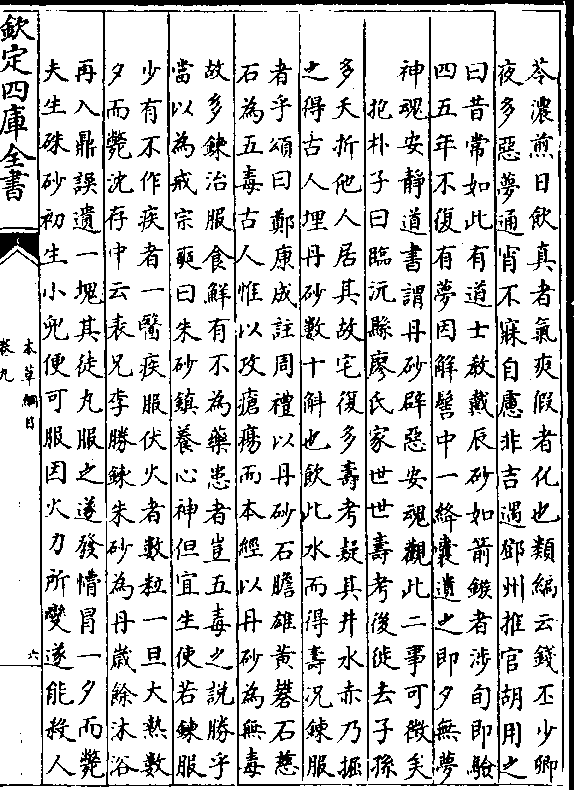 苓濃煎日飲真者氣爽假者化也類編云錢丕少卿
夜多惡夢通宵不寐自慮非吉遇鄧州推官胡用之
曰昔常如此有道士教戴辰砂如箭鏃者涉旬即驗
四五年不復有夢因解髻中一絳囊遺之即夕無夢
神魂安静道書謂丹砂辟惡安魂觀此二事可徵矣
抱朴子曰臨沅縣廖氏家世世壽考後徙去子孫
多夭折他人居其故宅復多壽考疑其井水赤乃掘
之得古人埋丹砂數十斛也飲此水而得壽况鍊服
者乎頌曰鄭康成註周禮以丹砂石膽雄黃礬石慈
石為五毒古人惟以攻瘡瘍而本經以丹砂為無毒
故多鍊治服食鮮有不為藥患者豈五毒之說勝乎
當以為戒宗奭曰朱砂鎮養心神但宜生使若鍊服
少有不作疾者一醫疾服伏火者數粒一旦大熱數
夕而斃沈存中云表兄李勝鍊朱砂為丹歲餘沐浴
再入鼎誤遺一塊其徒丸服之遂發懵冒一夕而斃
夫生硃砂初生小兒便可服因火力所變遂能殺人
欽定四庫全書
本草綱目
卷九
六